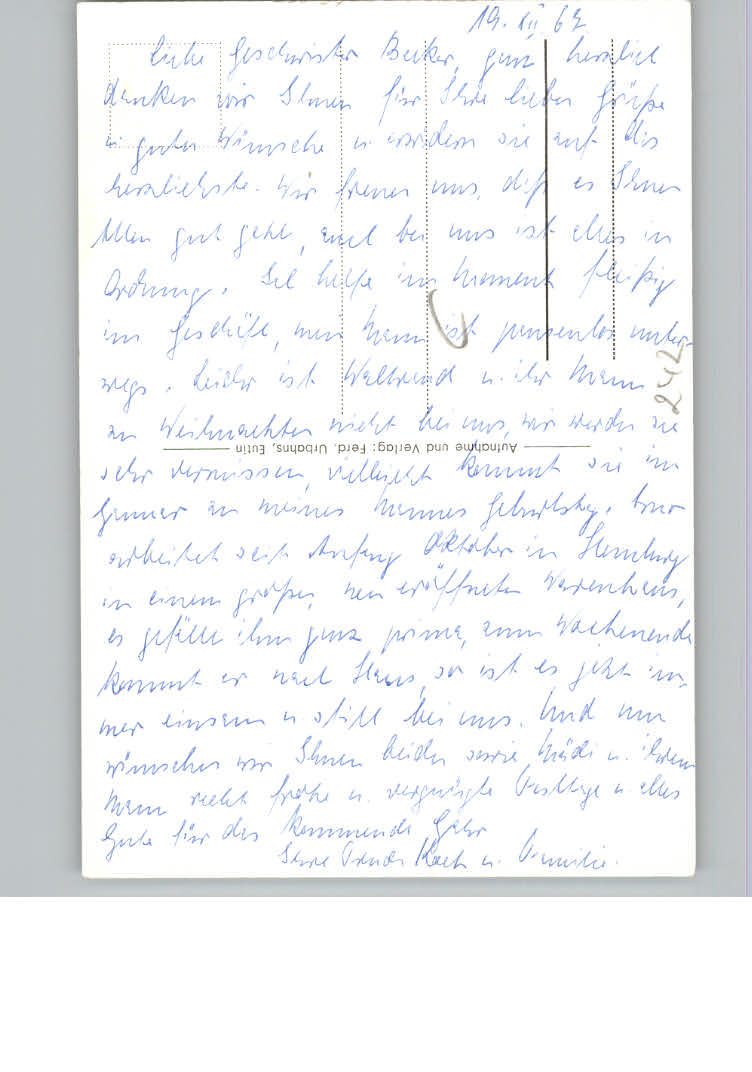 19. XII. 67
Liebe Geschwister Becker, ganz herzlich
danken wir Ihnen für Ihre lieben Grüße
u. guten Wünsche u. erwidern sie auf das
herzlichste. Wir freuen uns, daß es Ihnen
Allen gut geht, auch bei uns ist alles in
Ordnung. Ich helfe im Moment fleißig
im Geschäft, mein Mann ist pausenlos unter-
wegs. Leider ist Waltraud u. ihr Mann
an Weihnachten nicht bei uns, wir werden sie
sehr vermissen, vielleicht kommt sie im
Januar an meines Mannes Geburtstag.
arbeitet seit Anfang Oktober in Hamburg
in einem großen, neu eröffneten Warenhaus,
es gefällt ihm ganz prima, zum Wochenende
kommt er nach Haus, so ist es jetzt im-
mer einsam u. still bei uns. Und nun
wünschen wir Ihnen beiden sowie Mädi u. ihrem
Mann recht frohe u. vergnügte Festtage u. alles
Gute für das kommende Jahr
Ihre Trude Koch u. Familie.
242
Aufnahme und Verlag: Ferd. Urbahns, Eutin